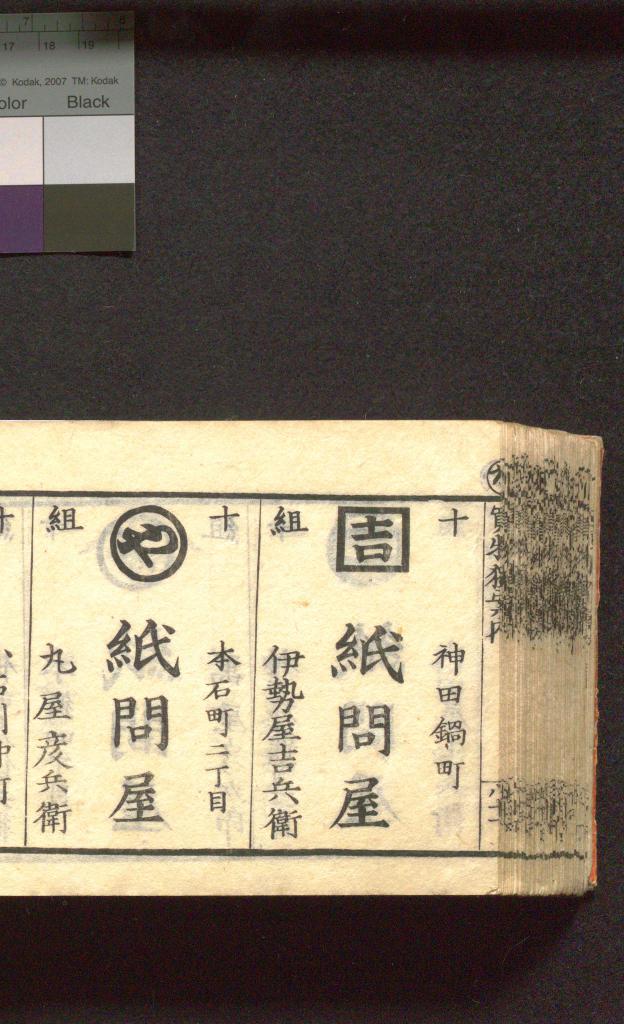 7 8
17 18 19
© Kodak, 2007 TM: Kodak
olor Black
十 組
吉
神田鍋町
紙問屋
伊勢屋吉兵衛
十 組
や
本石町二丁目
紙問屋
丸屋彦兵衛
十